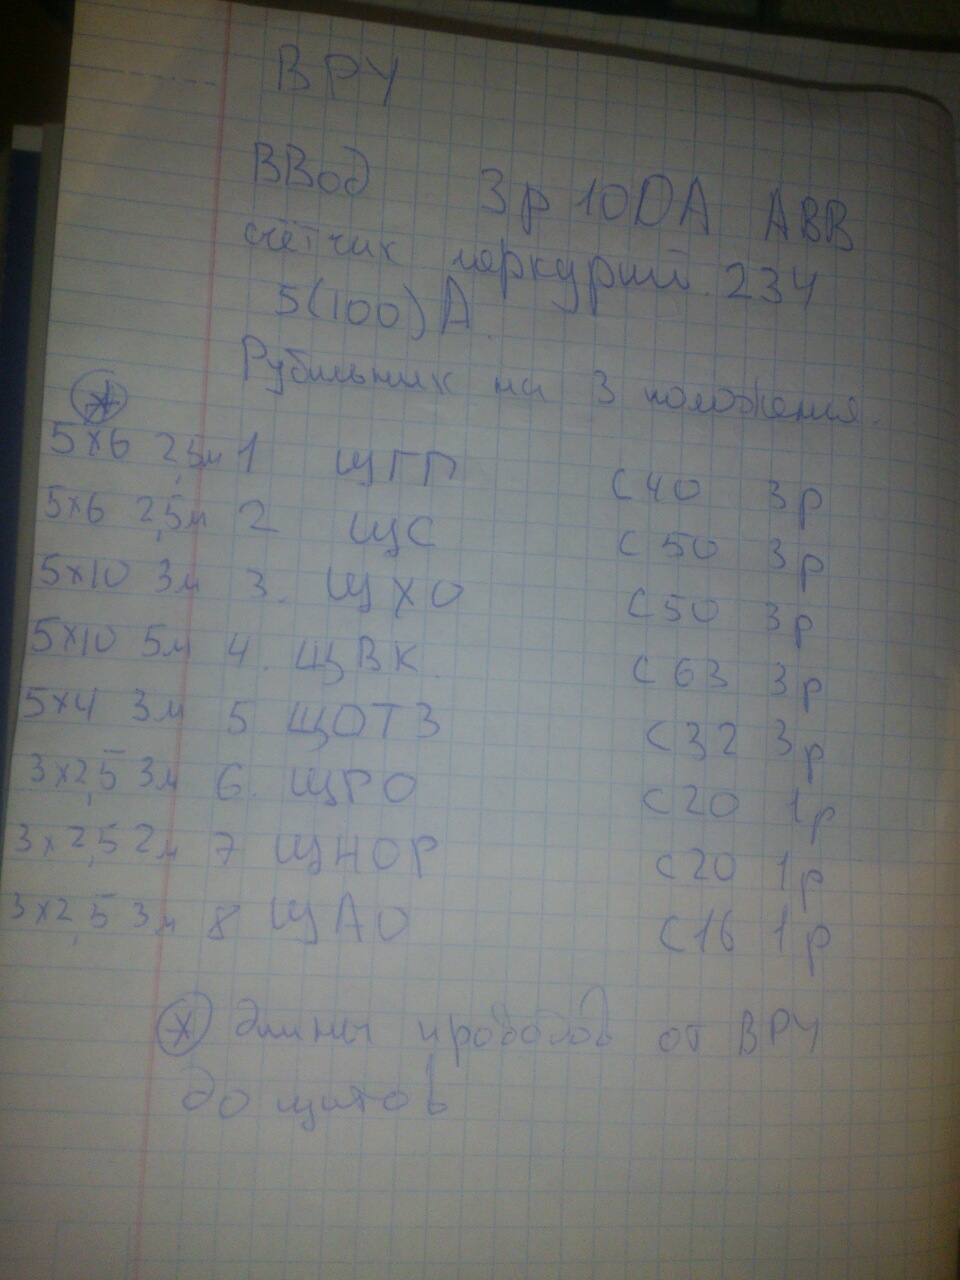 ВРУ
ВВод 3р 100А АВВ
счётчик меркурий 234
5(100)А.
Рубильник на 3 положения.
*
5х6 2,5м 1 ЩГП С40 3р
5х6 2,5м 2 ЩС С50 3р
5х10 3м 3. ЩХО С50 3р
5х10 5м 4. ЩВК. С63 3р
5х4 3м 5 ЩОТЗ С32 3р
3х2,5 3м 6. ЩРО С20 1р
3х2,5 2м 7 ЩНОР С20 1р
3х2,5 3м 8 ЩАО С16 1р
* длины проводов от ВРУ
до щитов